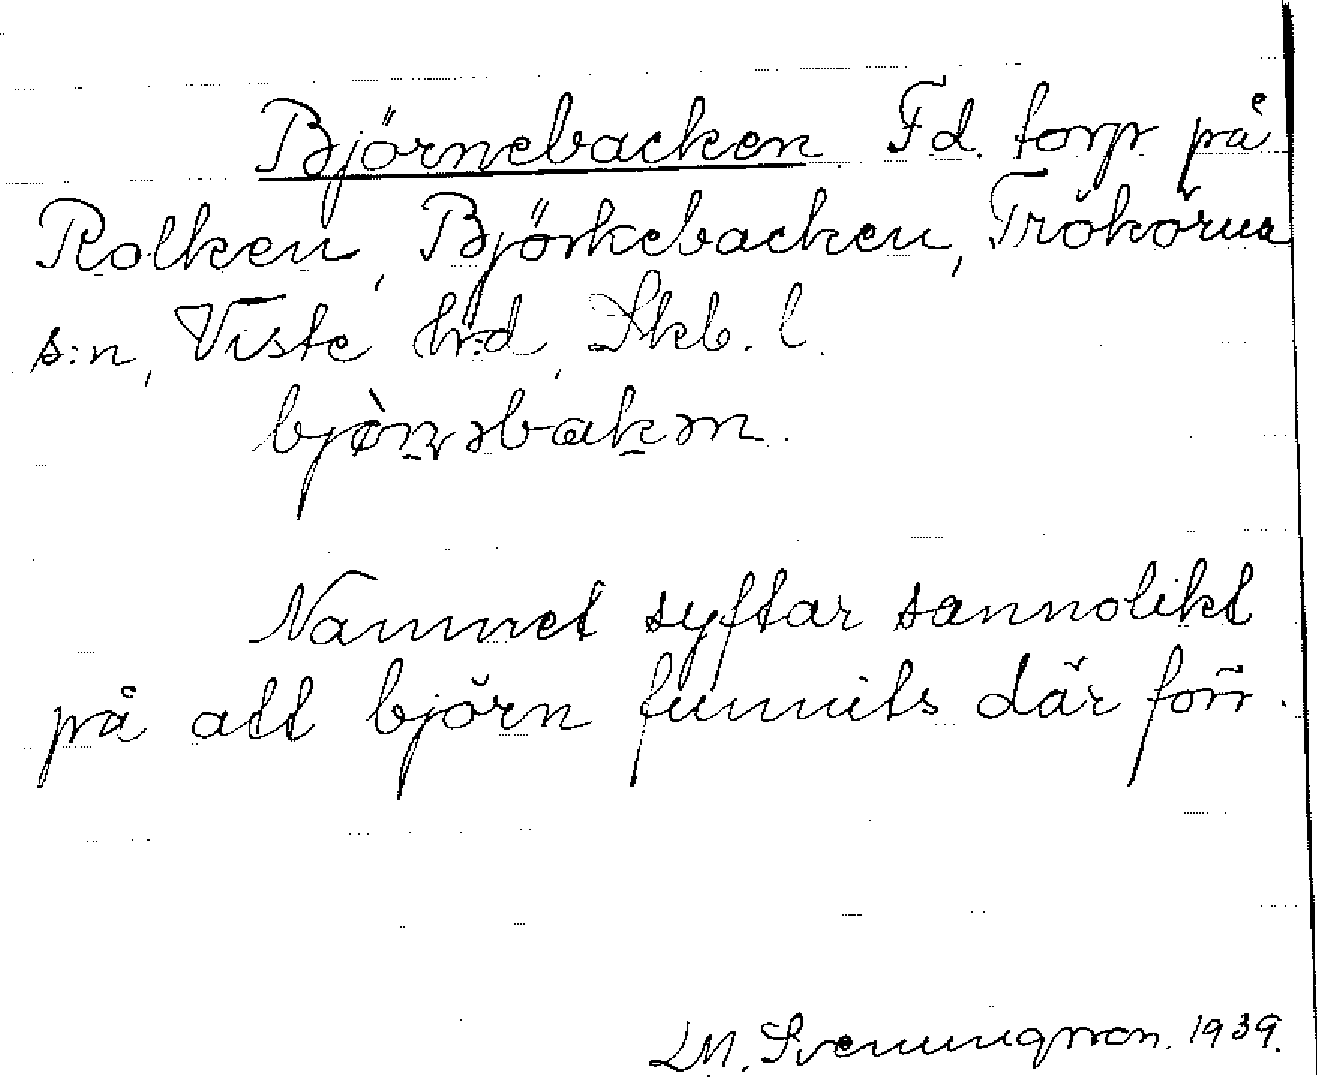 Björnebacken Fd. torp på
Rolken, Björkebacken, Trökörna
s:n, Viste hrd, Skb. l.
bjòn̥əbakən.
Namnet syftar sannolikt
på att björn funnits där förr.
LM. Svenungsson. 1939.